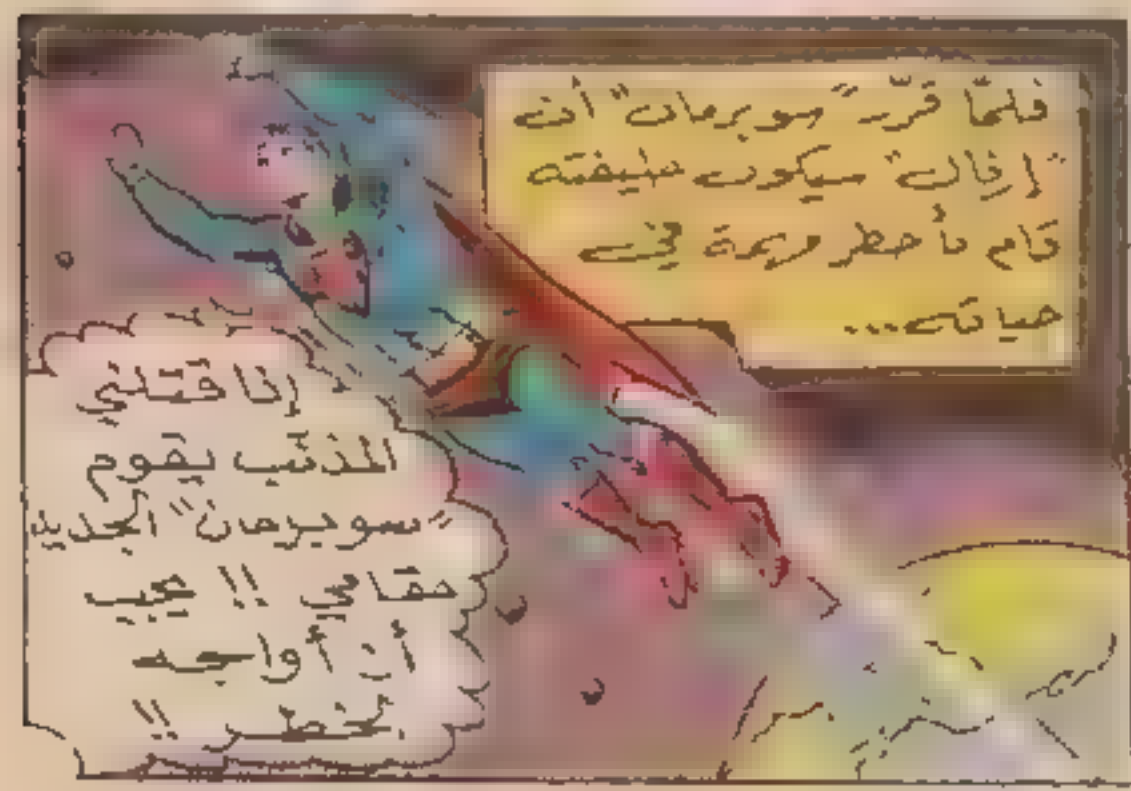 فلمّا قرّر "سوبرمان" أن
"إفان" سيكون خليفته
قام بأخطر مهمة في
حياته...
إذا قتلني
المذنّب يقوم
"سوبرمان" الجديد
مقامي !! يجب
أن أواجه
الخطر !!